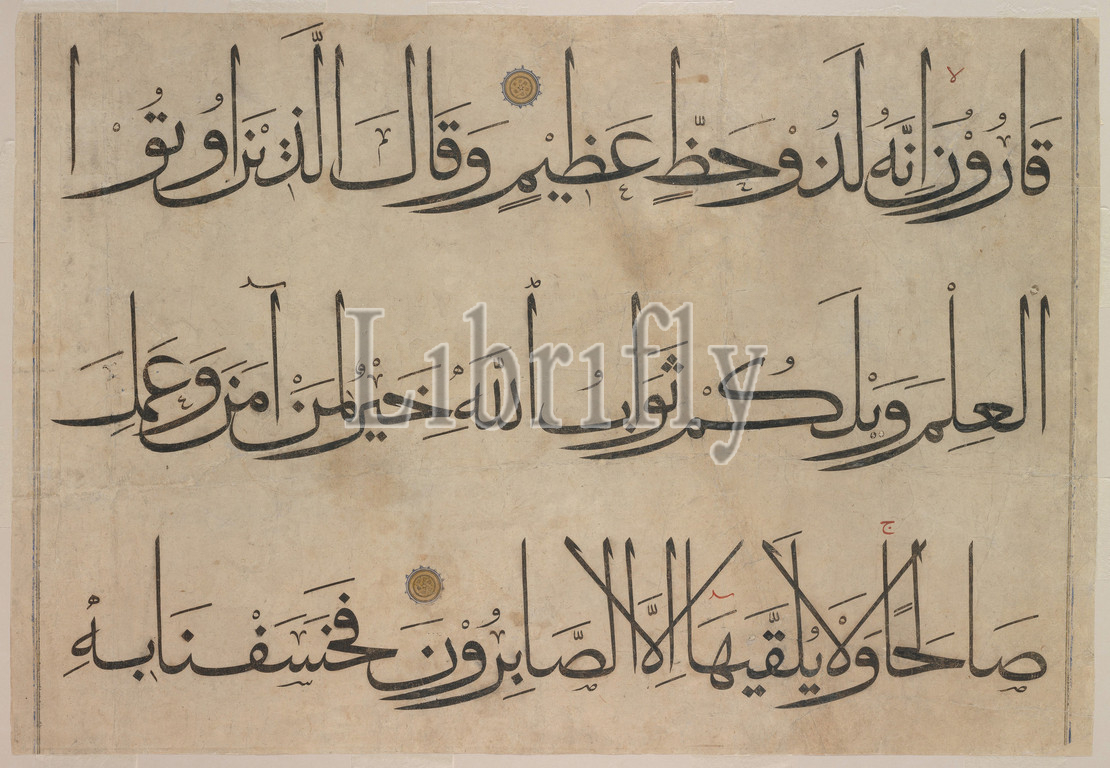 قَارُوْنُ اِنَّهُ لَذُوْ حَظٍّ عَظِيْمٍ وَقَالَ الَّذِيْنَ اُوْتُوْا
الْعِلْمَ وَيْلَكُمْ ثَوَابُ اللّٰهِ خَيْرٌ لِمَنْ آمَنَ وَعَمِلَ
صَالِحًا وَلَا يُلَقَّيهَا اِلَّا الصَّابِرُوْنَ فَخَسَفْنَا بِهِ
Librifly